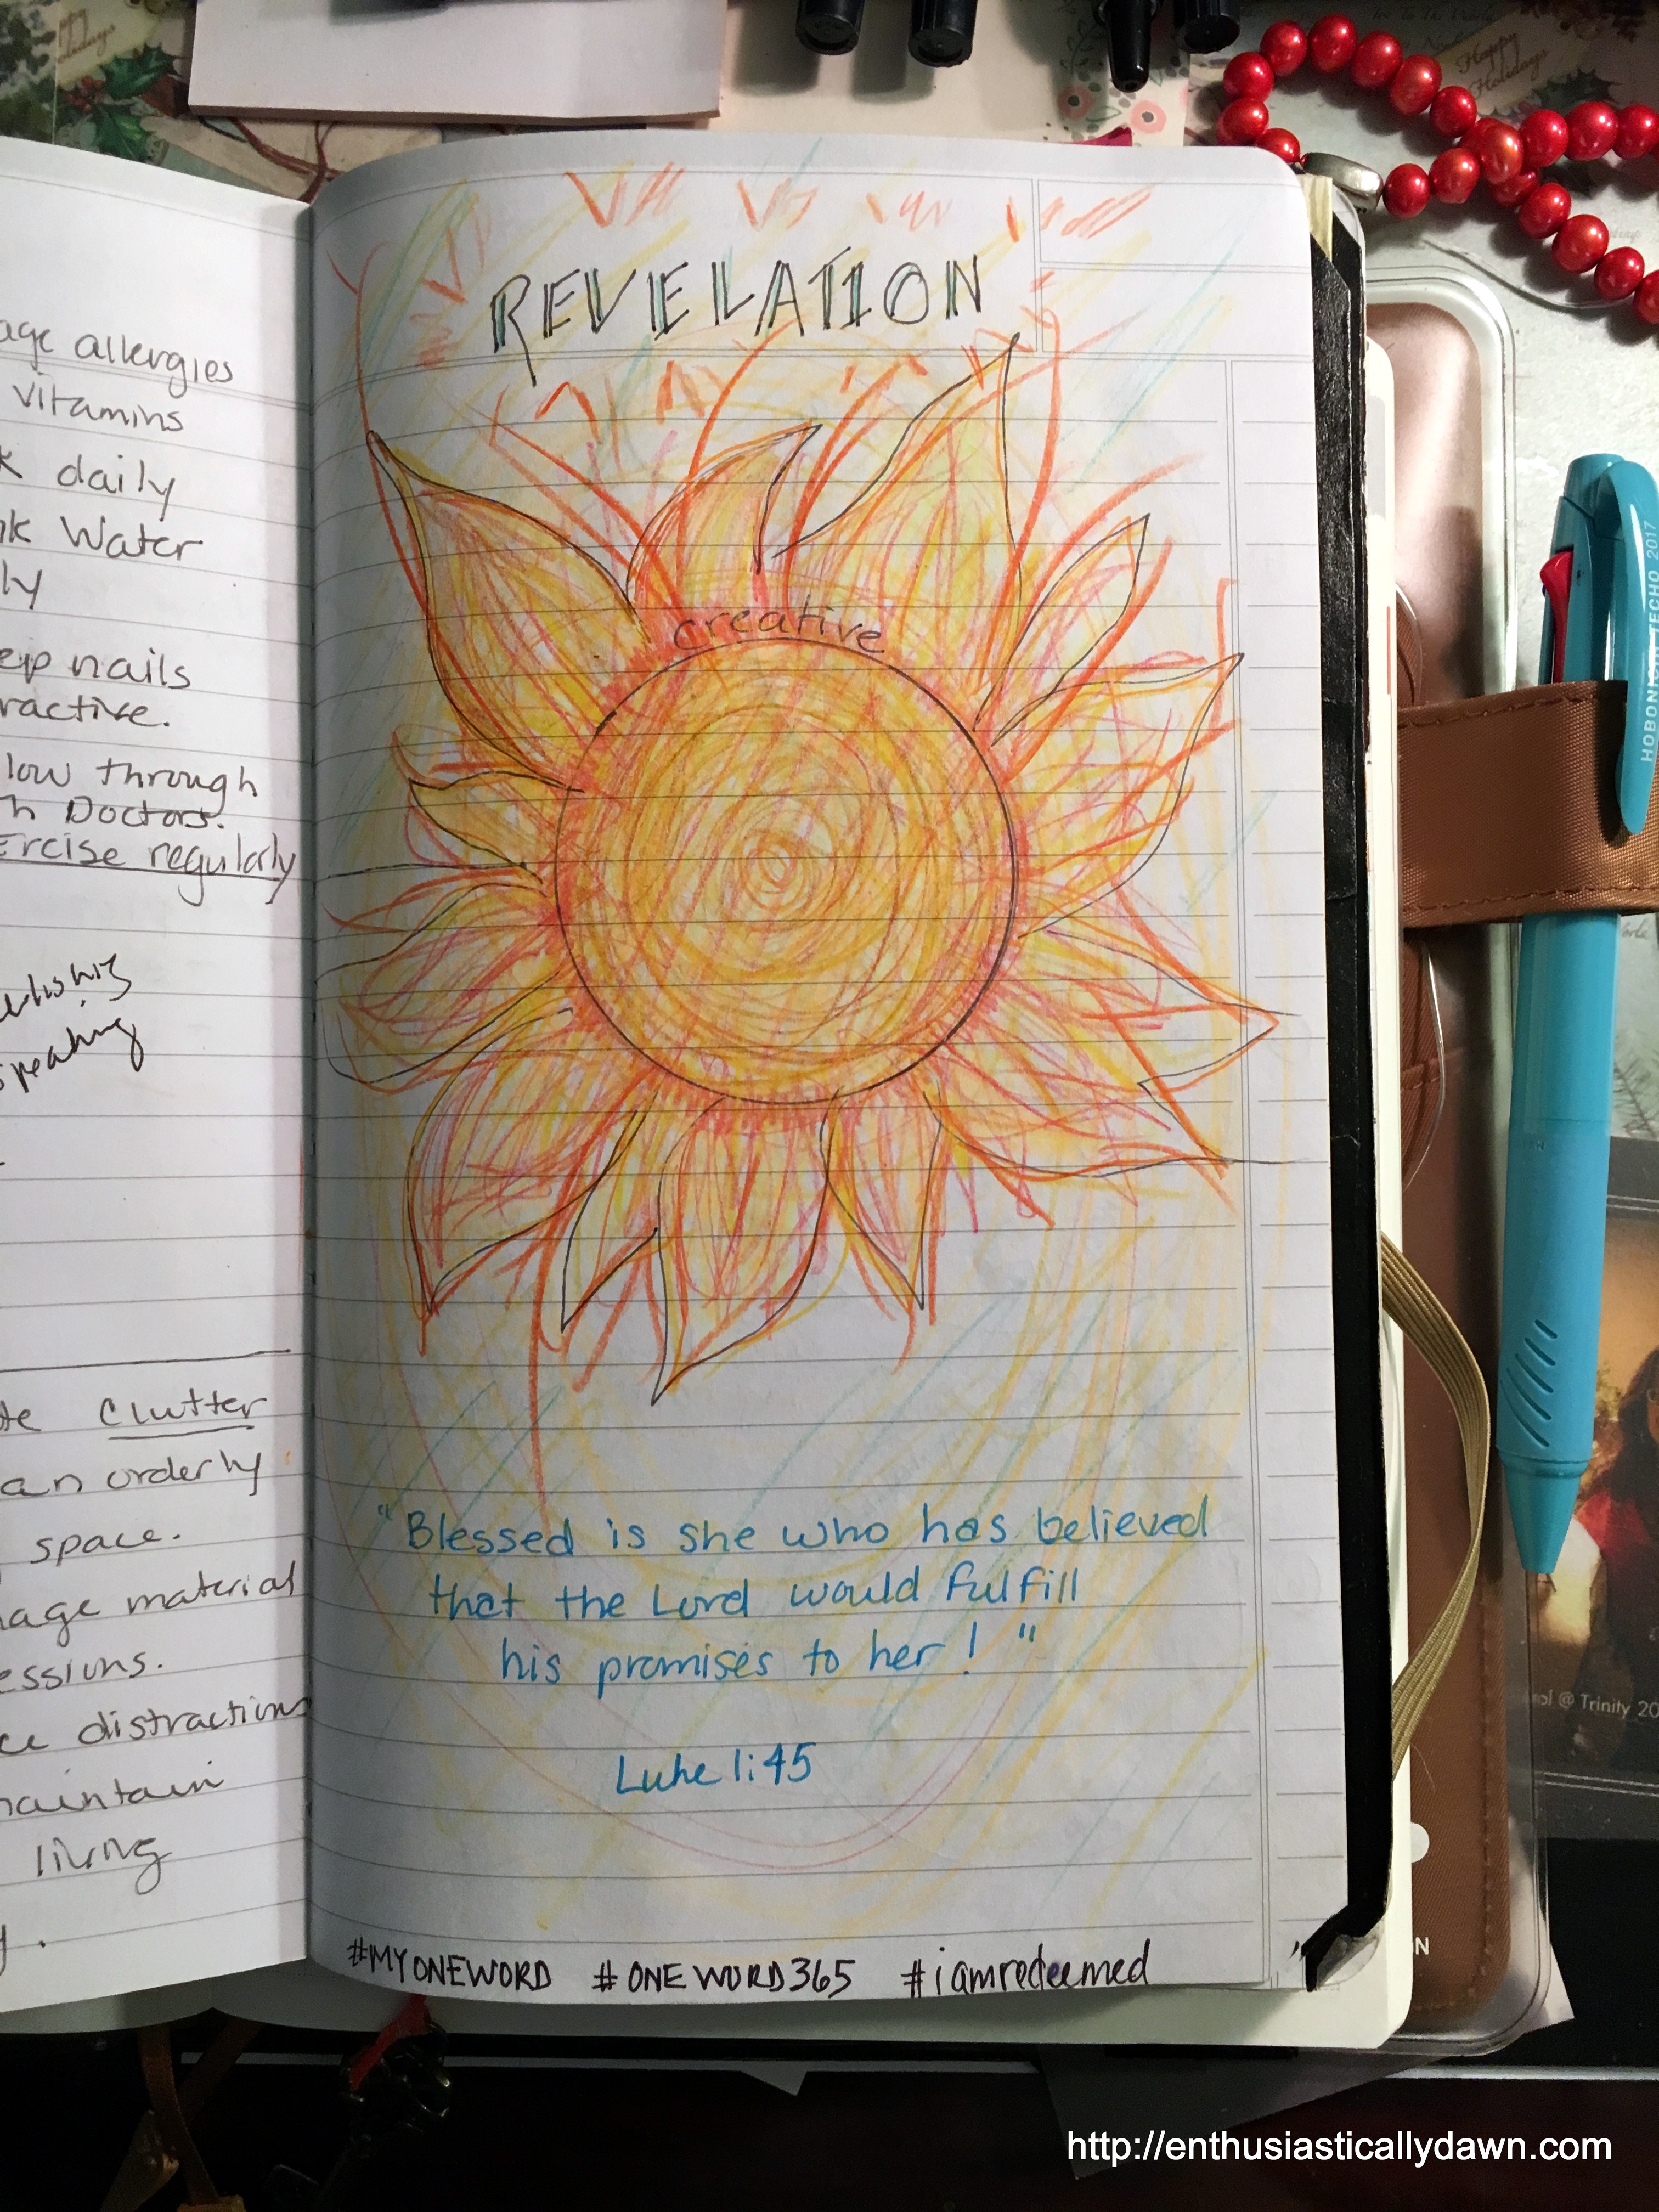 age allergies
vitamins
daily
Water
ly
nails
ractive.
low through
h Doctors.
Ercise regularly
speaking
Clutter
an orderly
space.
age material
essions.
ce distractions
maintain
living
REVELATION
creative
"Blessed is she who has believed
that the Lord would fulfill
his promises to her!"
Luke 1:45
#MYONEWORD #ONEWORD365 #iamredeemed
Happy
Holidays
HOBONICHI TECHO 2017
@ Trinity 20
http://enthusiasticallydawn.com